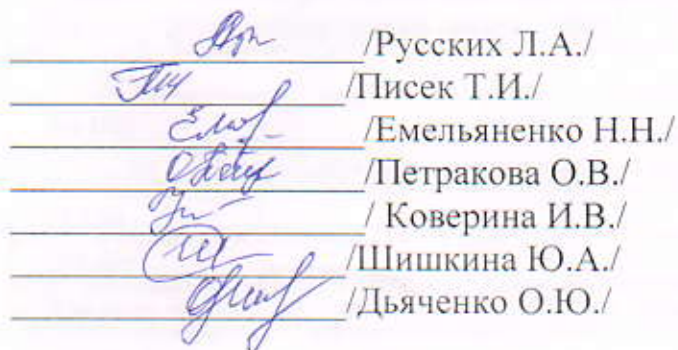 /Русских Л.А./
/Писек Т.И./
/Емельяненко Н.Н./
/Петракова О.В./
/ Коверина И.В./
/Шишкина Ю.А./
/Дьяченко О.Ю./